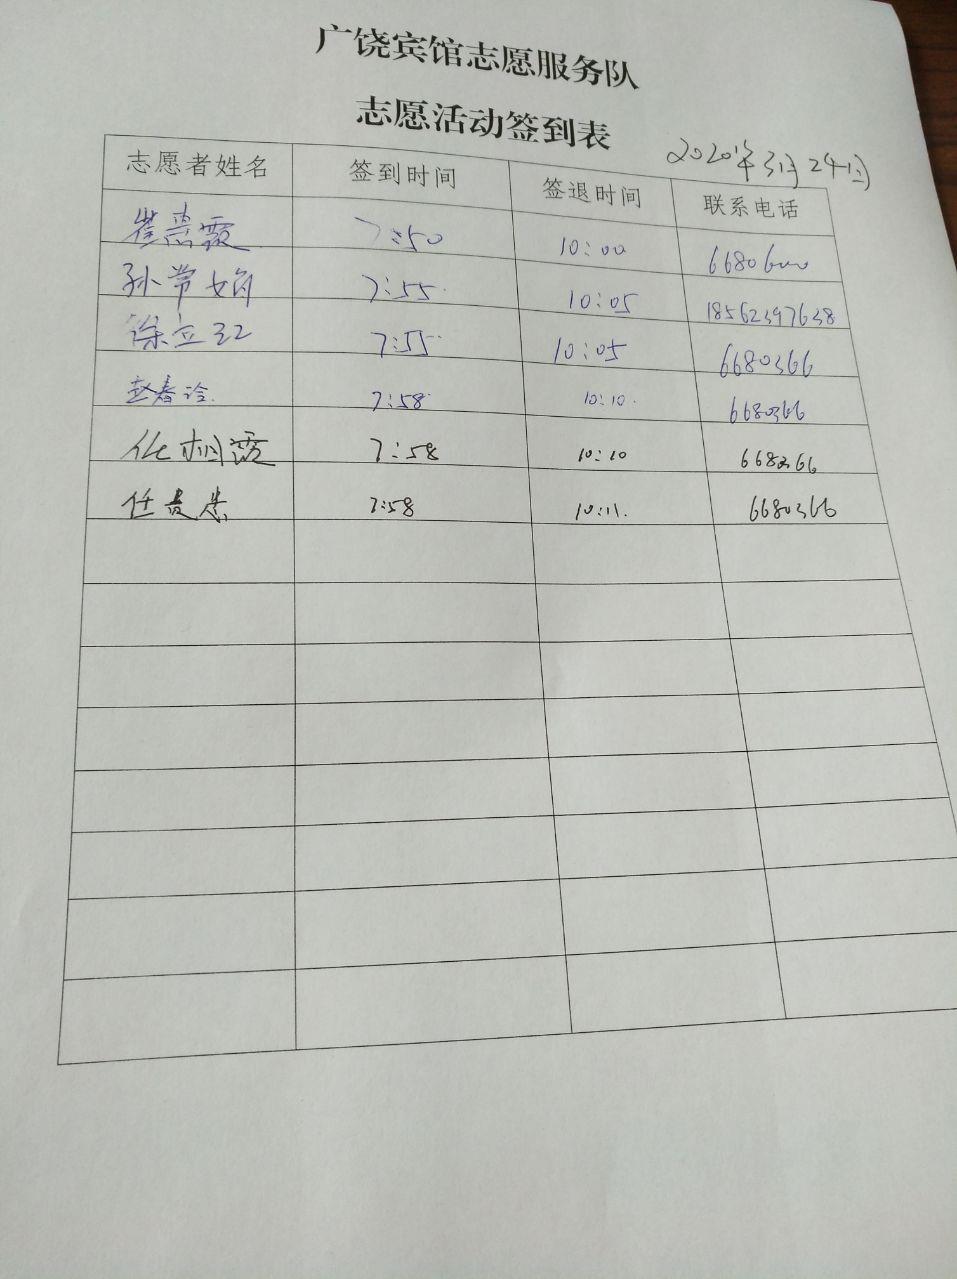 广饶宾馆志愿服务队
志愿活动签到表
2020年3月24日
志愿者姓名 签到时间 签退时间 联系电话
崔惠霞 7:50 10:00 6680600
孙常娟 7:55 10:05 18562397638
徐立 7:55 10:05 6680366
赵春玲 7:58 10:10 6680366
7:58 10:10 668366
任贵忠 7:58 10:11 6680366